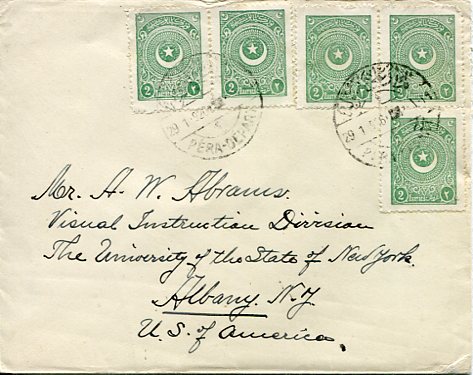 2 ٢
2 ٢
2 ٢
2 ٢
2 ٢
29.1.926
PERA-DEPART
29.1.926
Mr. A. W. Abrams.
Visual Instruction Division
The University of the State of New York.
Albany. N.Y.
U.S. of America.